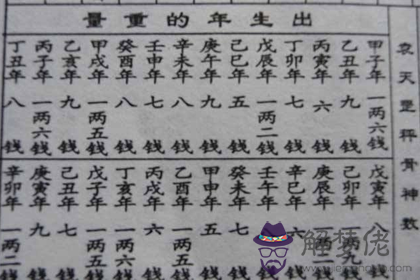 出生年的重量
袁天罡秤骨神數
甲子年 一两六錢
乙丑年 九錢
丙寅年 六錢
丁卯年 七錢
戊辰年 一两二錢
己巳年 五錢
庚午年 九錢
辛未年 八錢
壬申年 七錢
癸酉年 八錢
甲戌年 一两五錢
乙亥年 九錢
丙子年 一两六錢
丁丑年 八錢
戊寅年
己卯年
庚辰年
辛巳年
壬午年
癸未年
甲申年 五
乙酉年 一两五
丙戌年
丁亥年 一两六
戊子年 一两五
己丑年 七
庚寅年 九
辛卯年 一两二
解梦佬